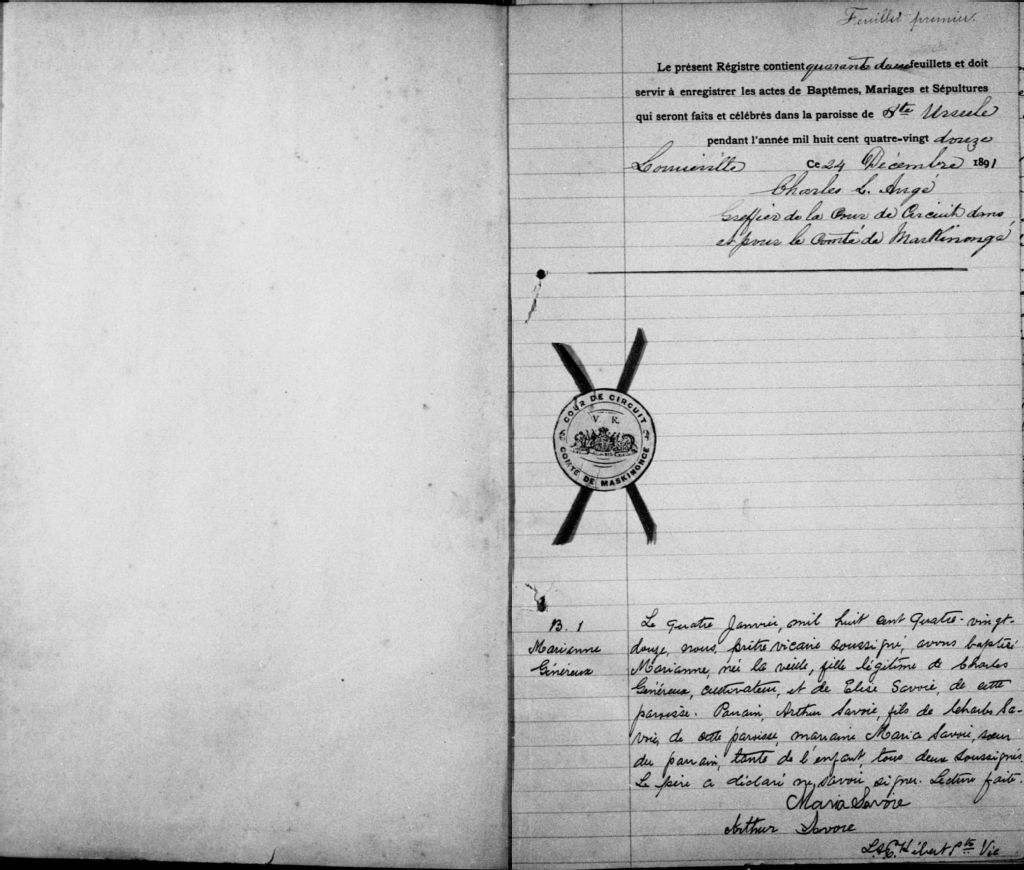 Feuillet premier.
Le présent Régistre contient quarante deux feuillets et doit
servir à enregistrer les actes de Baptêmes, Mariages et Sépultures
qui seront faits et célébrés dans la paroisse de Ste Ursule
pendant l'année mil huit cent quatre-vingt douze
Louiseville Ce 24 Décembre 1891
Charles L. Augé
Greffier de la Cour de Circuit dans
et pour le Comté de Maskinongé
COUR DE CIRCUIT
V. R.
COMTÉ DE MASKINONGE
B. 1
Marianne
Généreux
Le quatre Janvier, mil huit cent quatre-vingt-
douze, nous prêtre vicaire soussigné, avons baptisé
Marianne, née la veille, fille légitime de Charles
Généreux, cultivateur, et de Elise Savoie, de cette
paroisse. Parrain, Arthur Savoie, fils de Charles Sa-
voie, de cette paroisse, marraine Maria Savoie, sœur
du parrain, tante de l'enfant, tous deux soussignés
Le père a déclaré ne savoir signer. Lecture faite.
Maria Savoie
Arthur Savoie
Hébert Ptre Vic